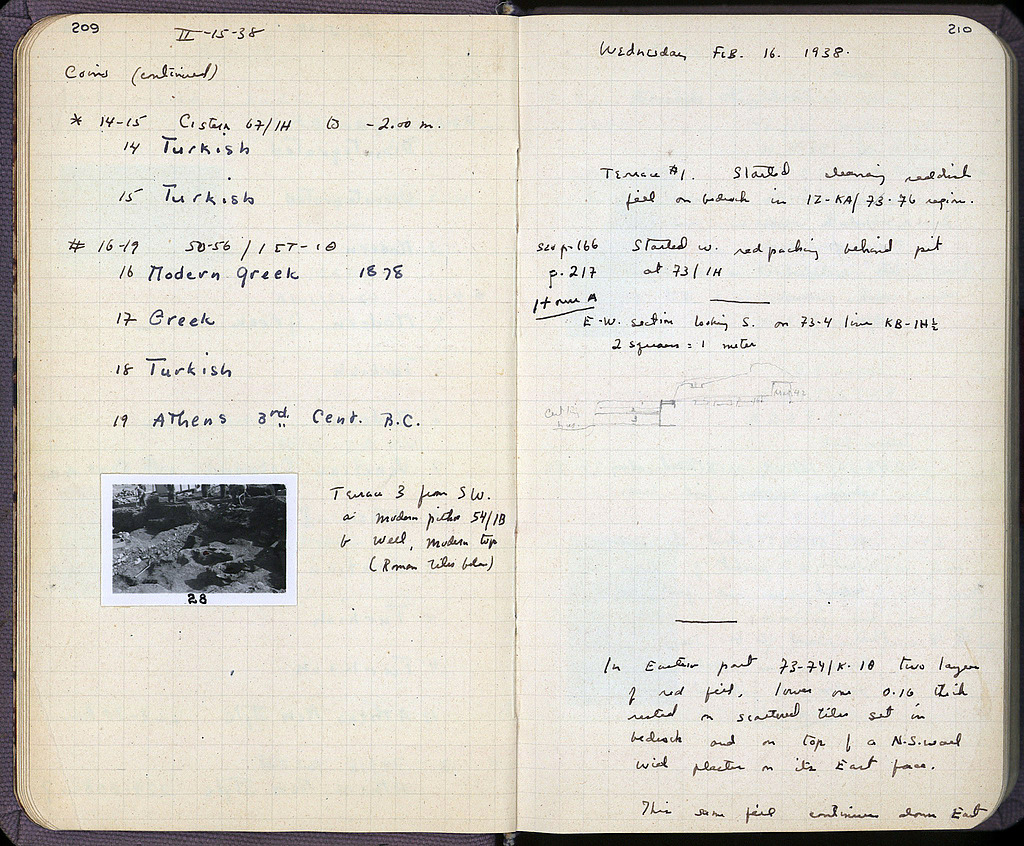 209
II-15-38
Coins (continued)
* 14-15 Cistern 67/IH -2.00 m.
14 Turkish
15 Turkish
# 16-19 50-56 /
16 Modern Greek 1878
17 Greek
18 Turkish
19 Athens 3rd. Cent. B.C.
28
Terrace 3 from SW.
a modern pithos 54/IB
b well, modern top
(Roman tiles below)
210
Wednesday FEB. 16. 1938.
Terrace #1. Started cleaning reddish
fill on bedrock in IZ-KA/73-76 region.
see p-166 Started w. red packing behind pit
p. 217 at 73/IH
E-W. section looking S. on 73-4 line KB-IH½
2 squares = 1 meter
In Eastern part 73-74/K-IΘ two layers
of red fill, lower one 0.16 thick
rested on scattered tiles set in
bedrock and on top of a N-S. wall
with plaster on its East face.
This same fill continues down East